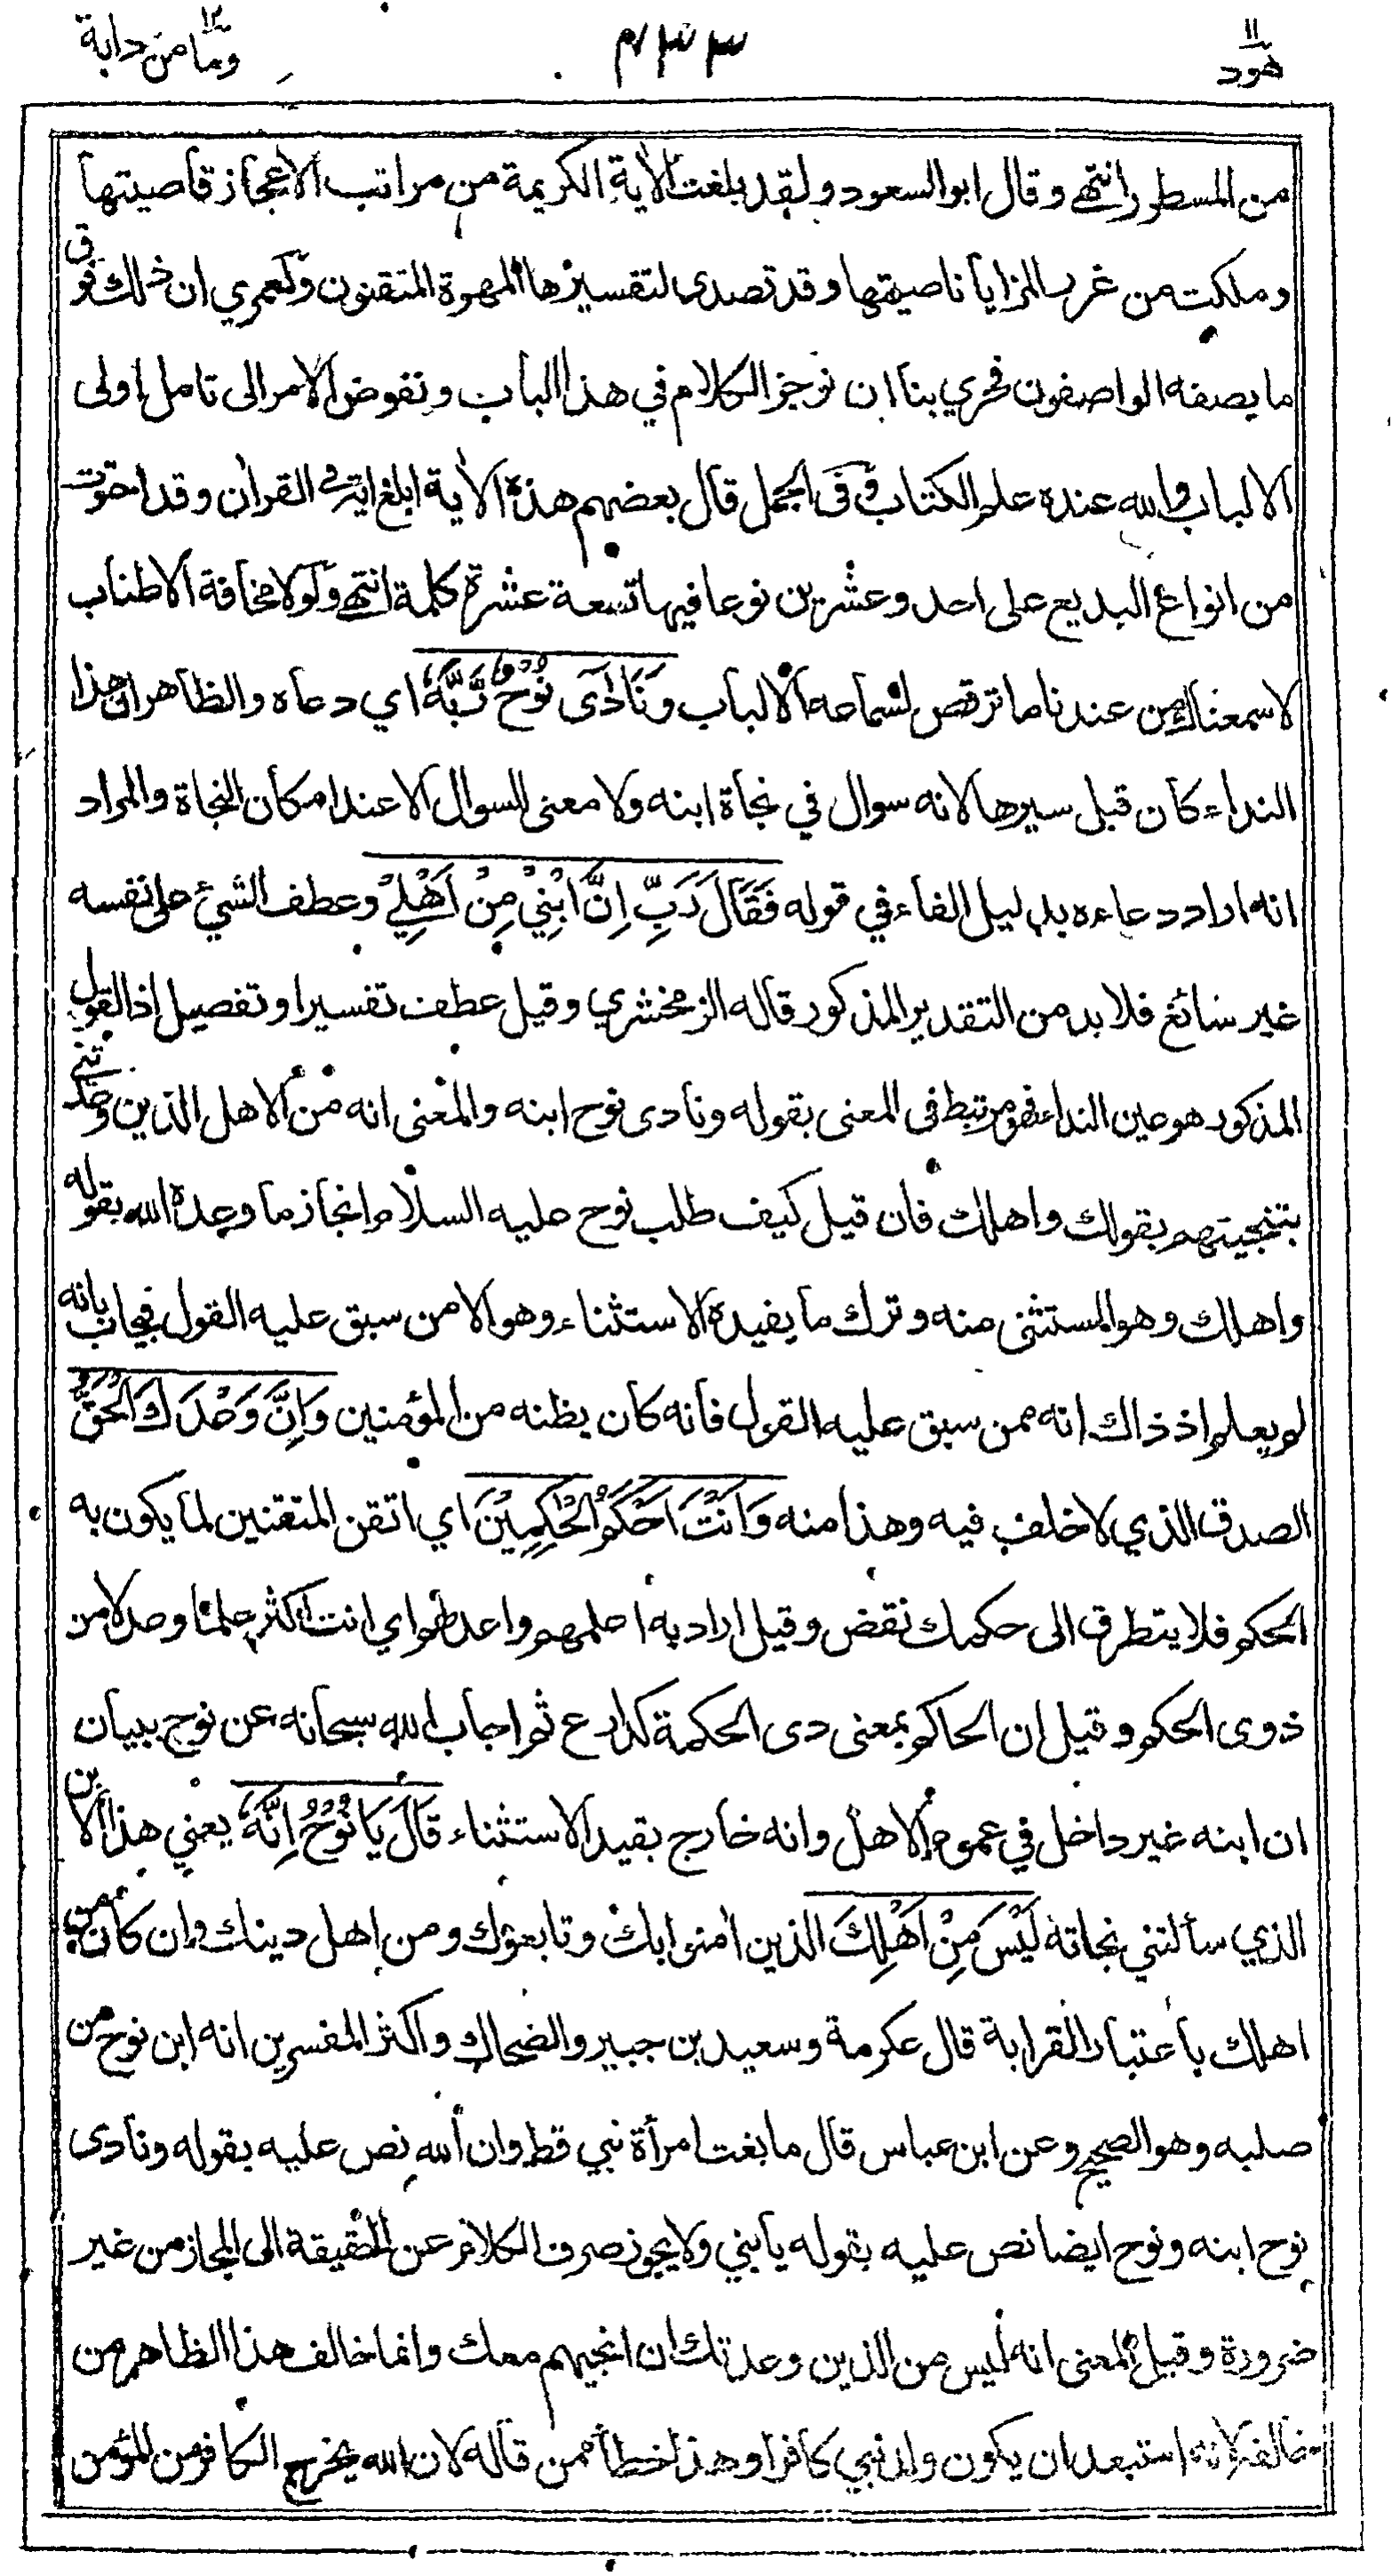 هود ١١
٤٣٣
وما من دابة ١٢
من المسطور انتهى وقال ابو السعود ولقد بلغت الأية الكريمة من مراتب الاعجاز قاصيتها
وملكت من غرب المزايا ناصيتها وقد تصدى لتفسيرها المهرة المتقنون ولعمري ان ذلك فوق
ما يصفه الواصفون فحري بنا ان نوجز الكلام في هذا الباب ونفوض الامر الى تامل اولى
الالباب والله عنده علم الكتاب وفى الجمل قال بعضهم هذه الأية ابلغ اية في القرأن وقد احتوت
من انواع البديع على احد وعشرين نوعا فيها تسعة عشرة كلمة انتهى ولولا مخافة الاطناب
لاسمعناك من عندنا ما ترقص لسماعه الالباب وَنَادَى نُوحٌ رَّبَّهُ اي دعاه والظاهر ان هذا
النداء كان قبل سيرها لانه سوال في نجاة ابنه ولا معنى للسوال الا عند امكان النجاة والمراد
انه اراد دعاءه بدليل الفاء في قوله فَقَالَ رَبِّ اِنَّ ابْنِيْ مِنْ اَهْلِيْ وعطف الشيئ على نفسه
غير سائغ فلا بد من التقدير المذكور قاله الزمخشري وقيل عطف تفسير او تفصيل اذ القول
المذكور هو عين النداء فهو مرتبط فى المعنى بقوله ونادى نوح ابنه والمعنى انه من الاهل الذين وعدتني
بتنجيتهم بقولك واهلك فان قيل كيف طلب نوح عليه السلام انجاز ما وعده الله بقوله
واهلك وهو المستثنى منه وترك ما يفيده الاستثناء وهو الا من سبق عليه القول فيجاب بانه
لم يعلم اذ ذاك انه ممن سبق عليه القول فانه كان يظنه من المؤمنين وَاِنَّ وَعْدَكَ الْحَقُّ
الصدق الذي لا خلف فيه وهذا منه وَاَنْتَ اَحْكَمُ الْحٰكِمِيْنَ اي اتقن المتقنين لما يكون به
الحكم فلا يتطرق الى حكمك نقض وقيل اراد به اعلمهم واعدلهم اي انت اكثر علما وعدلا من
ذوى الحكم وقيل ان الحاكم بمعنى ذى الحكمة كدارع ثم اجاب الله سبحانه عن نوح ببيان
ان ابنه غير داخل في عموم الاهل وانه خارج بقيد الاستثناء قَالَ يَا نُوْحُ اِنَّهُ يعني هذا الابن
الذي سألتني نجاته لَيْسَ مِنْ اَهْلِكَ الذين أمنوا بك وتابعوك ومن اهل دينك وان كان من
اهلك باعتبار القرابة قال عكرمة وسعيد بن جبير والضحاك واكثر المفسرين انه ابن نوح من
صلبه وهو الصحيح وعن ابن عباس قال ما بغت امرأة نبي قط وان الله نص عليه بقوله ونادى
نوح ابنه ونوح ايضا نص عليه بقوله يا بني ولا يجوز صرف الكلام عن الحقيقة الى المجاز من غير
ضرورة وقيل المعنى انه ليس من الذين وعدتك ان انجيهم معك وانما خالف هذا الظاهر من
خالفه لانه استبعد ان يكون ولد نبي كافرا وهذا خطأ ممن قاله لان الله يخرج الكافر من المؤمن